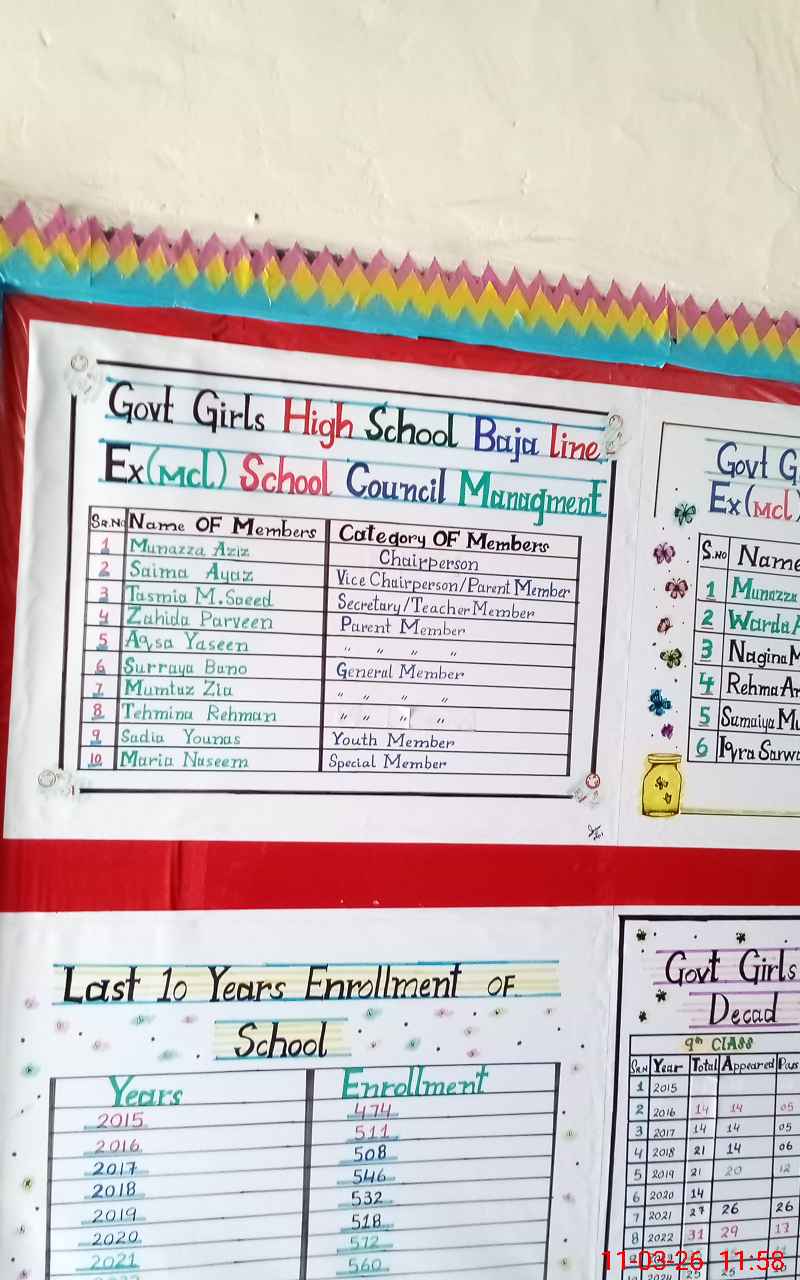 Govt Girls High School Baja line
Ex(Mcl) School Council Managment
Sr.No Name OF Members Category OF Members
1 Munazza Aziz Chairperson
2 Saima Ayaz Vice Chairperson/Parent Member
3 Tasmia M.Saeed Secretary/Teacher Member
4 Zahida Parveen Parent Member
5 Aqsa Yaseen " " " "
6 Surraya Bano General Member
7 Mumtaz Zia " " " "
8 Tehmina Rehman " " " "
9 Sadia Younas Youth Member
10 Maria Naseem Special Member
Govt G
Ex(Mcl)
S.No Name
1 Munazza
2 Warda
3 Nagina M
4 Rehma Ar
5 Sumaiya Mu
6 Iqra Sarwa
Last 10 Years Enrollment OF
School
Years Enrollment
2015 474
2016 511
2017 508
2018 546
2019 532
2020 518
2021 572
560
Govt Girls
Decad
9th ClASS
Sr.N Year Total Appeared Pass
1 2015
2 2016 14 14 05
3 2017 14 14 05
4 2018 21 14 06
5 2019 21 20 12
6 2020 14
7 2021 27 26 26
8 2022 31 29 17
11-03-26 11:58